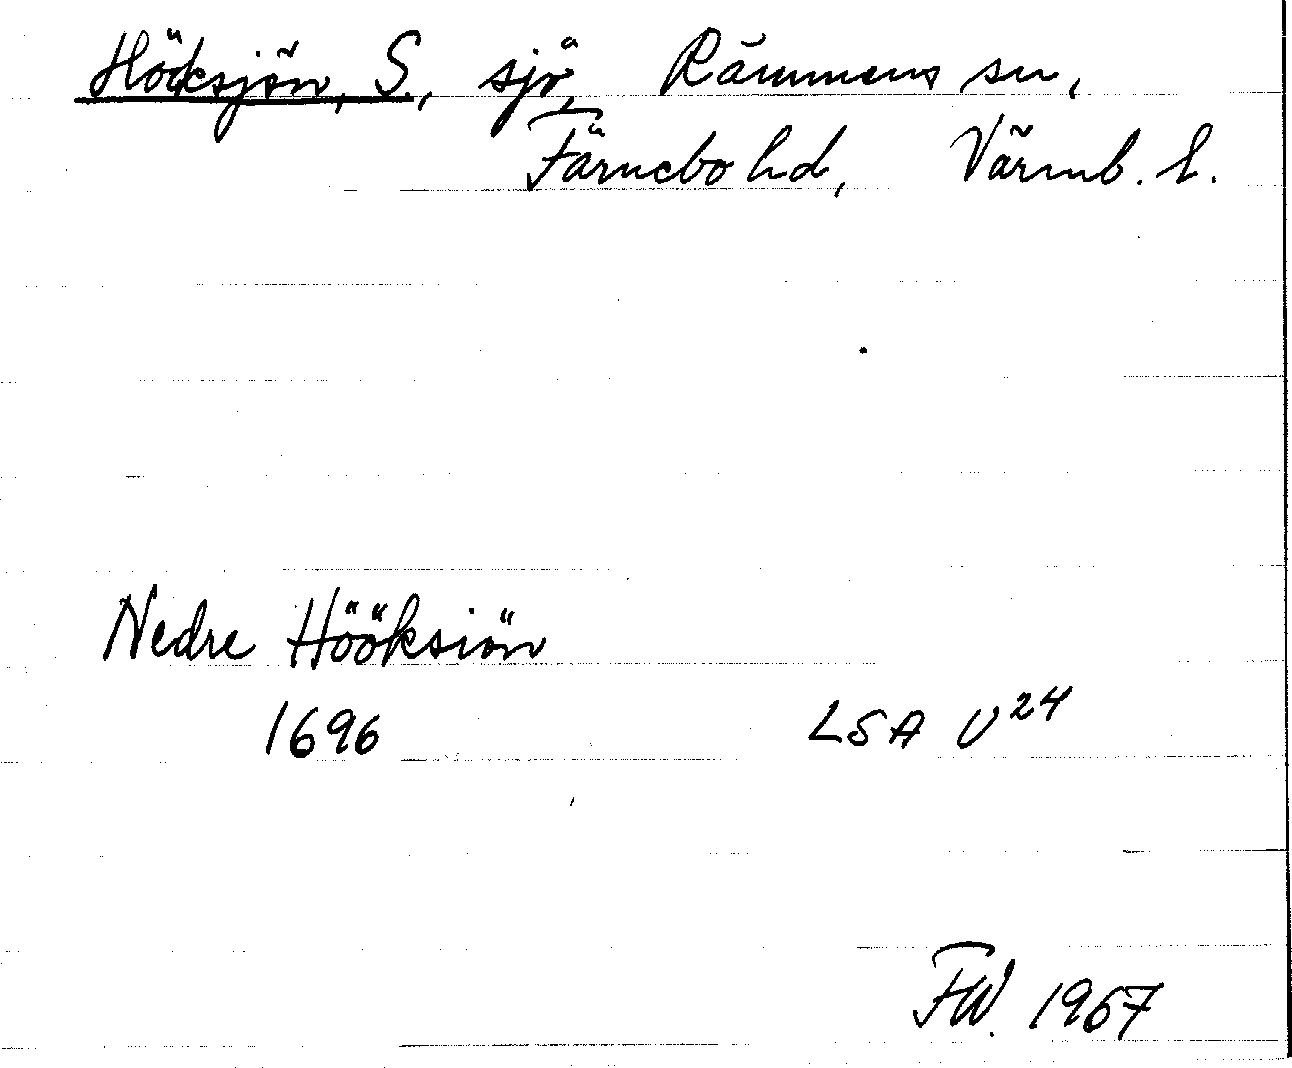 Höksjön, S., sjö, Rämmens sn,
Färnebo hd, Värml. l.
Nedre Hööksiön
1696 LSA U 24
FW. 1967